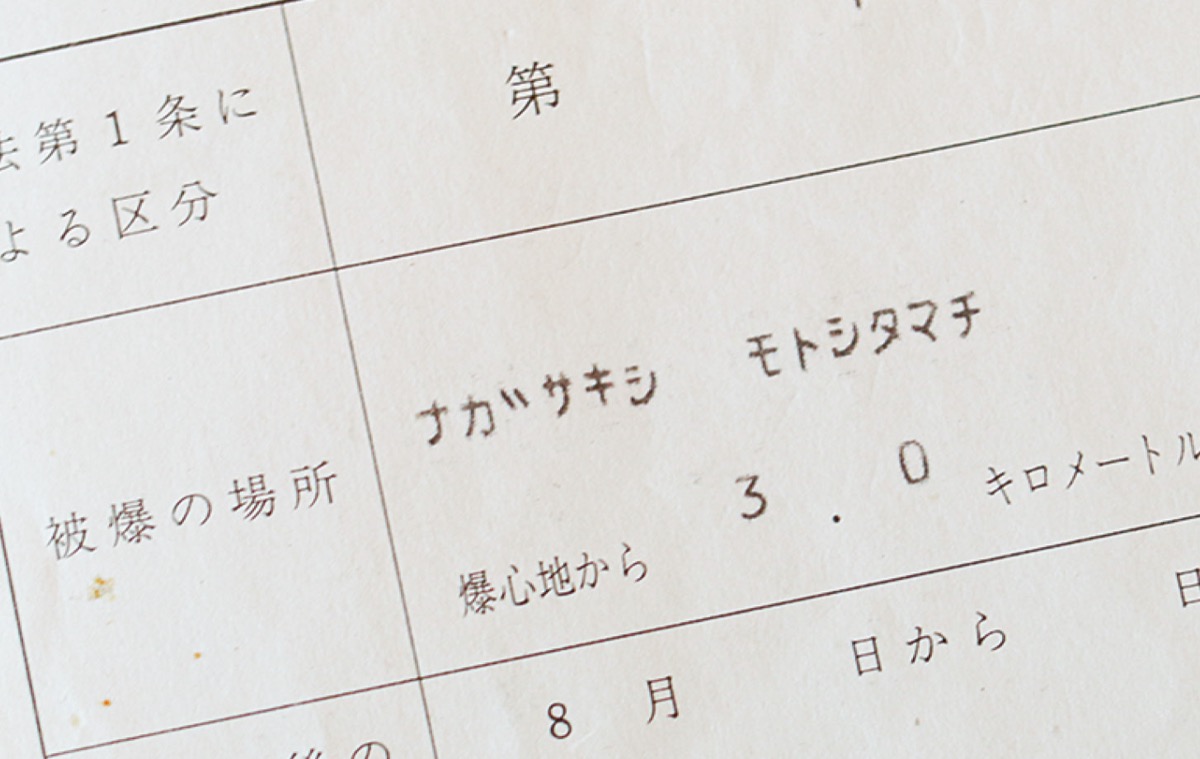 法第1条に
よる区分
第
被爆の場所
ナガサキシ モトシタマチ
爆心地から 3.0 キロメートル
8 月 日から 日
後の